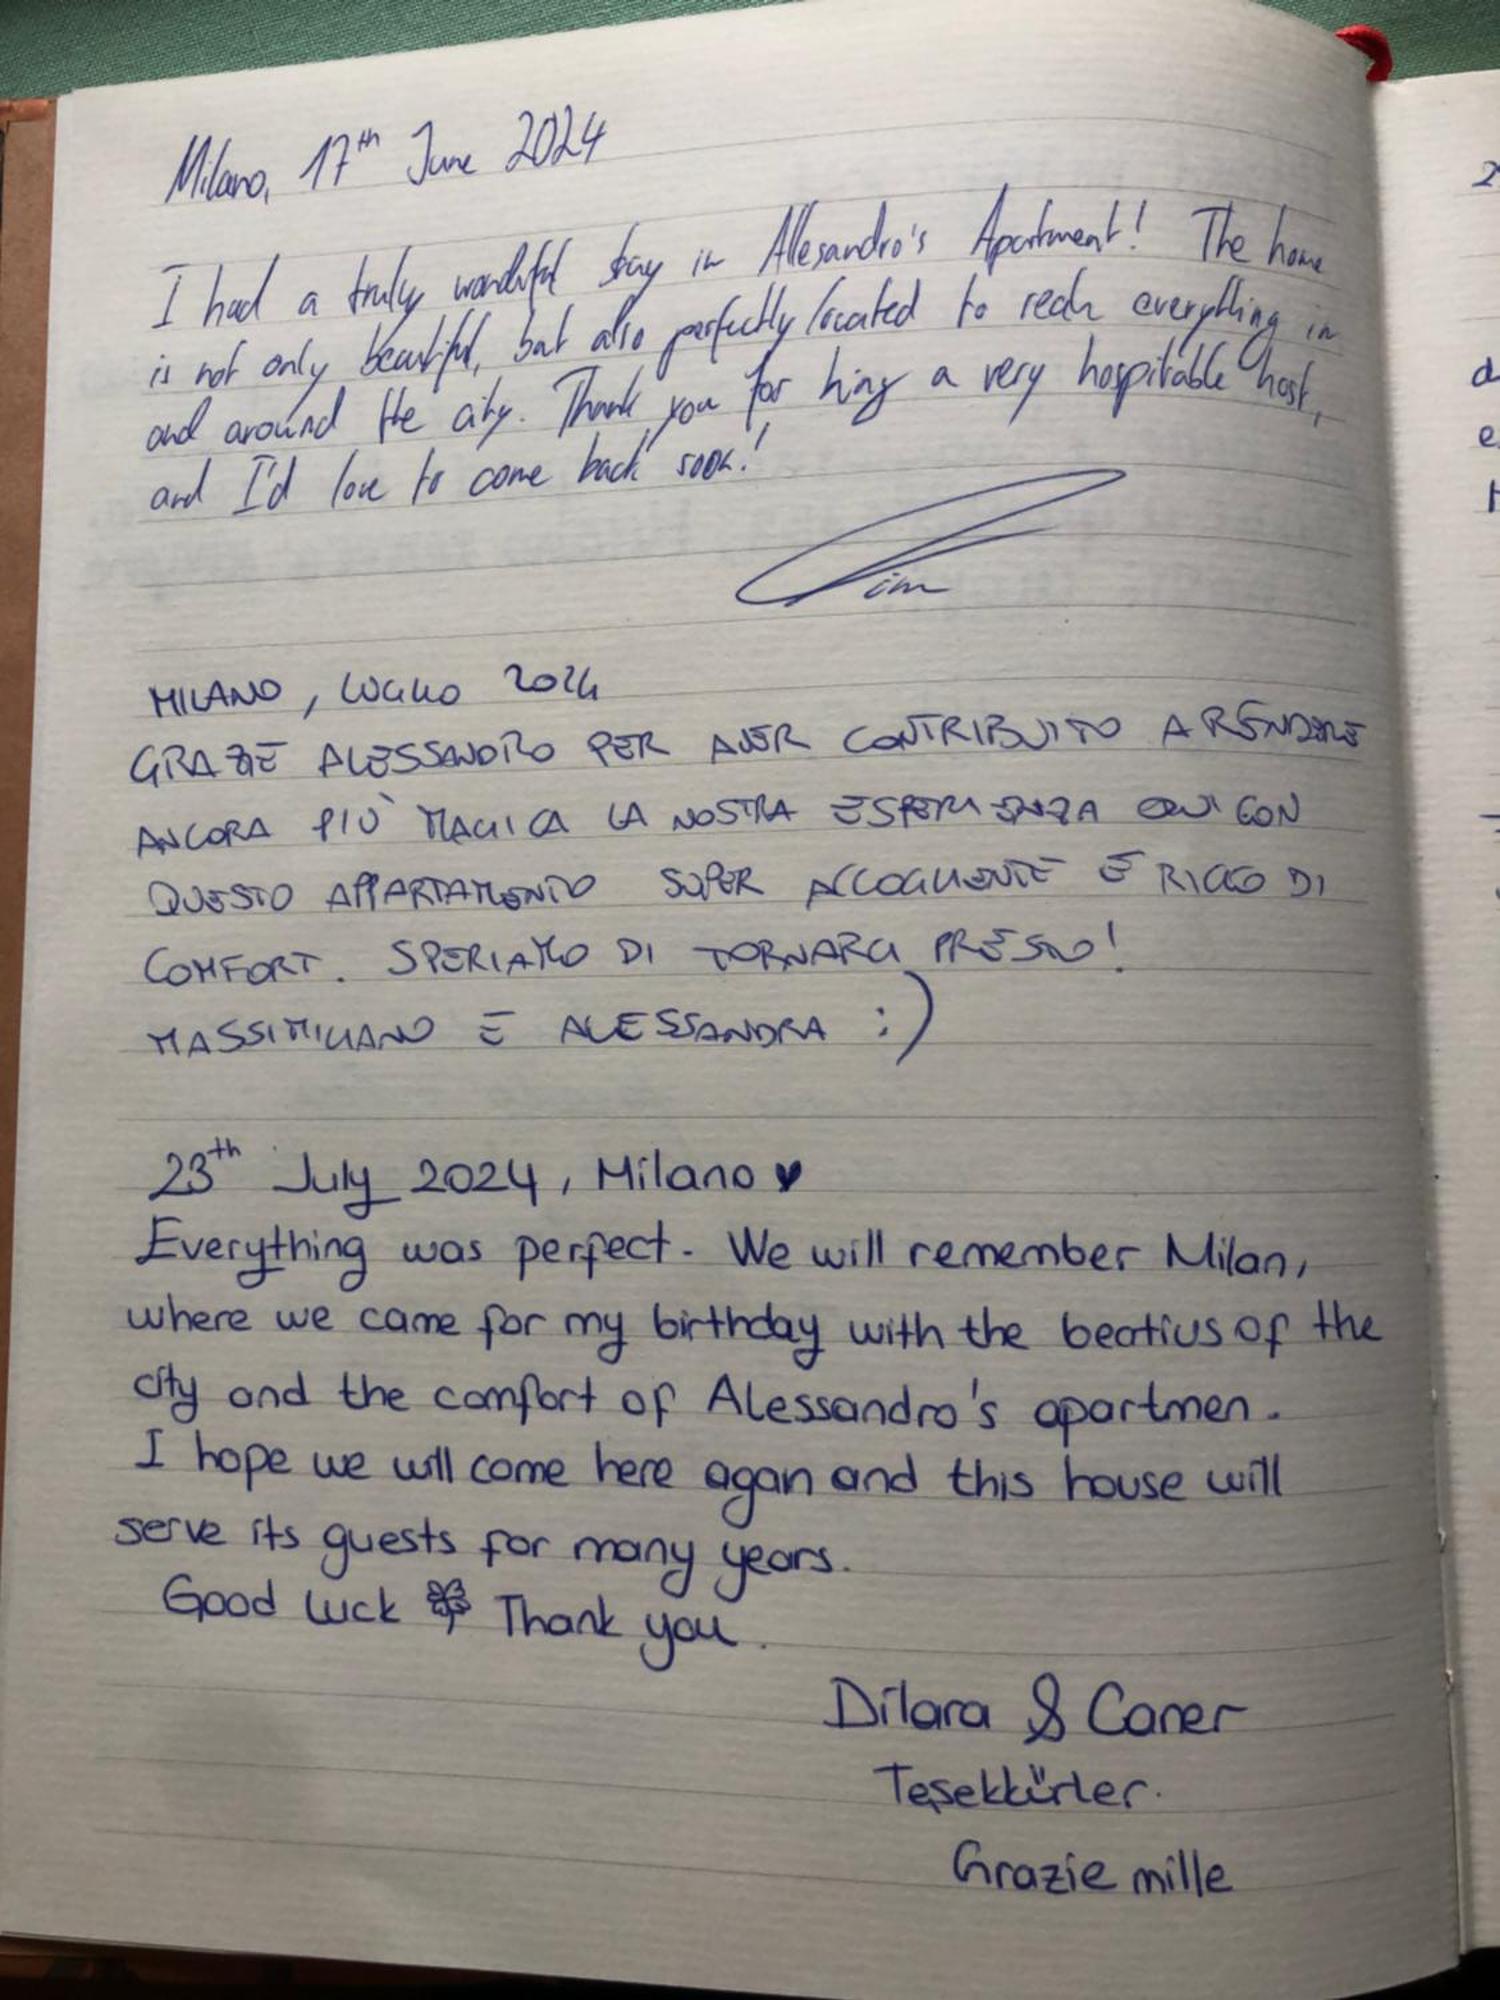 Milano, 17th June 2024
I had a truly wonderful stay in Allesandro's Apartment! The home
is not only beautiful, but also perfectly located to reach everything in
and around the city. Thank you for being a very hospitable host,
and I'd love to come back soon!
Tim
MILANO, LUGLIO 2024
GRAZIE ALESSANDRO PER AVER CONTRIBUITO A RENDERE
ANCORA PIÙ MAGICA LA NOSTRA ESPERIENZA QUI CON
QUESTO APPARTAMENTO SUPER ACCOGLIENTE E RICCO DI
COMFORT. SPERIAMO DI TORNARCI PRESTO!
MASSIMILIANO E ALESSANDRA :)
23th July 2024, Milano ♥
Everything was perfect. We will remember Milan,
where we came for my birthday with the beatius of the
city and the comfort of Alessandro's apartmen.
I hope we will come here agan and this house will
serve its guests for many years.
Good luck 🍀 Thank you.
Dilara & Caner
Teşekkürler.
Grazie mille